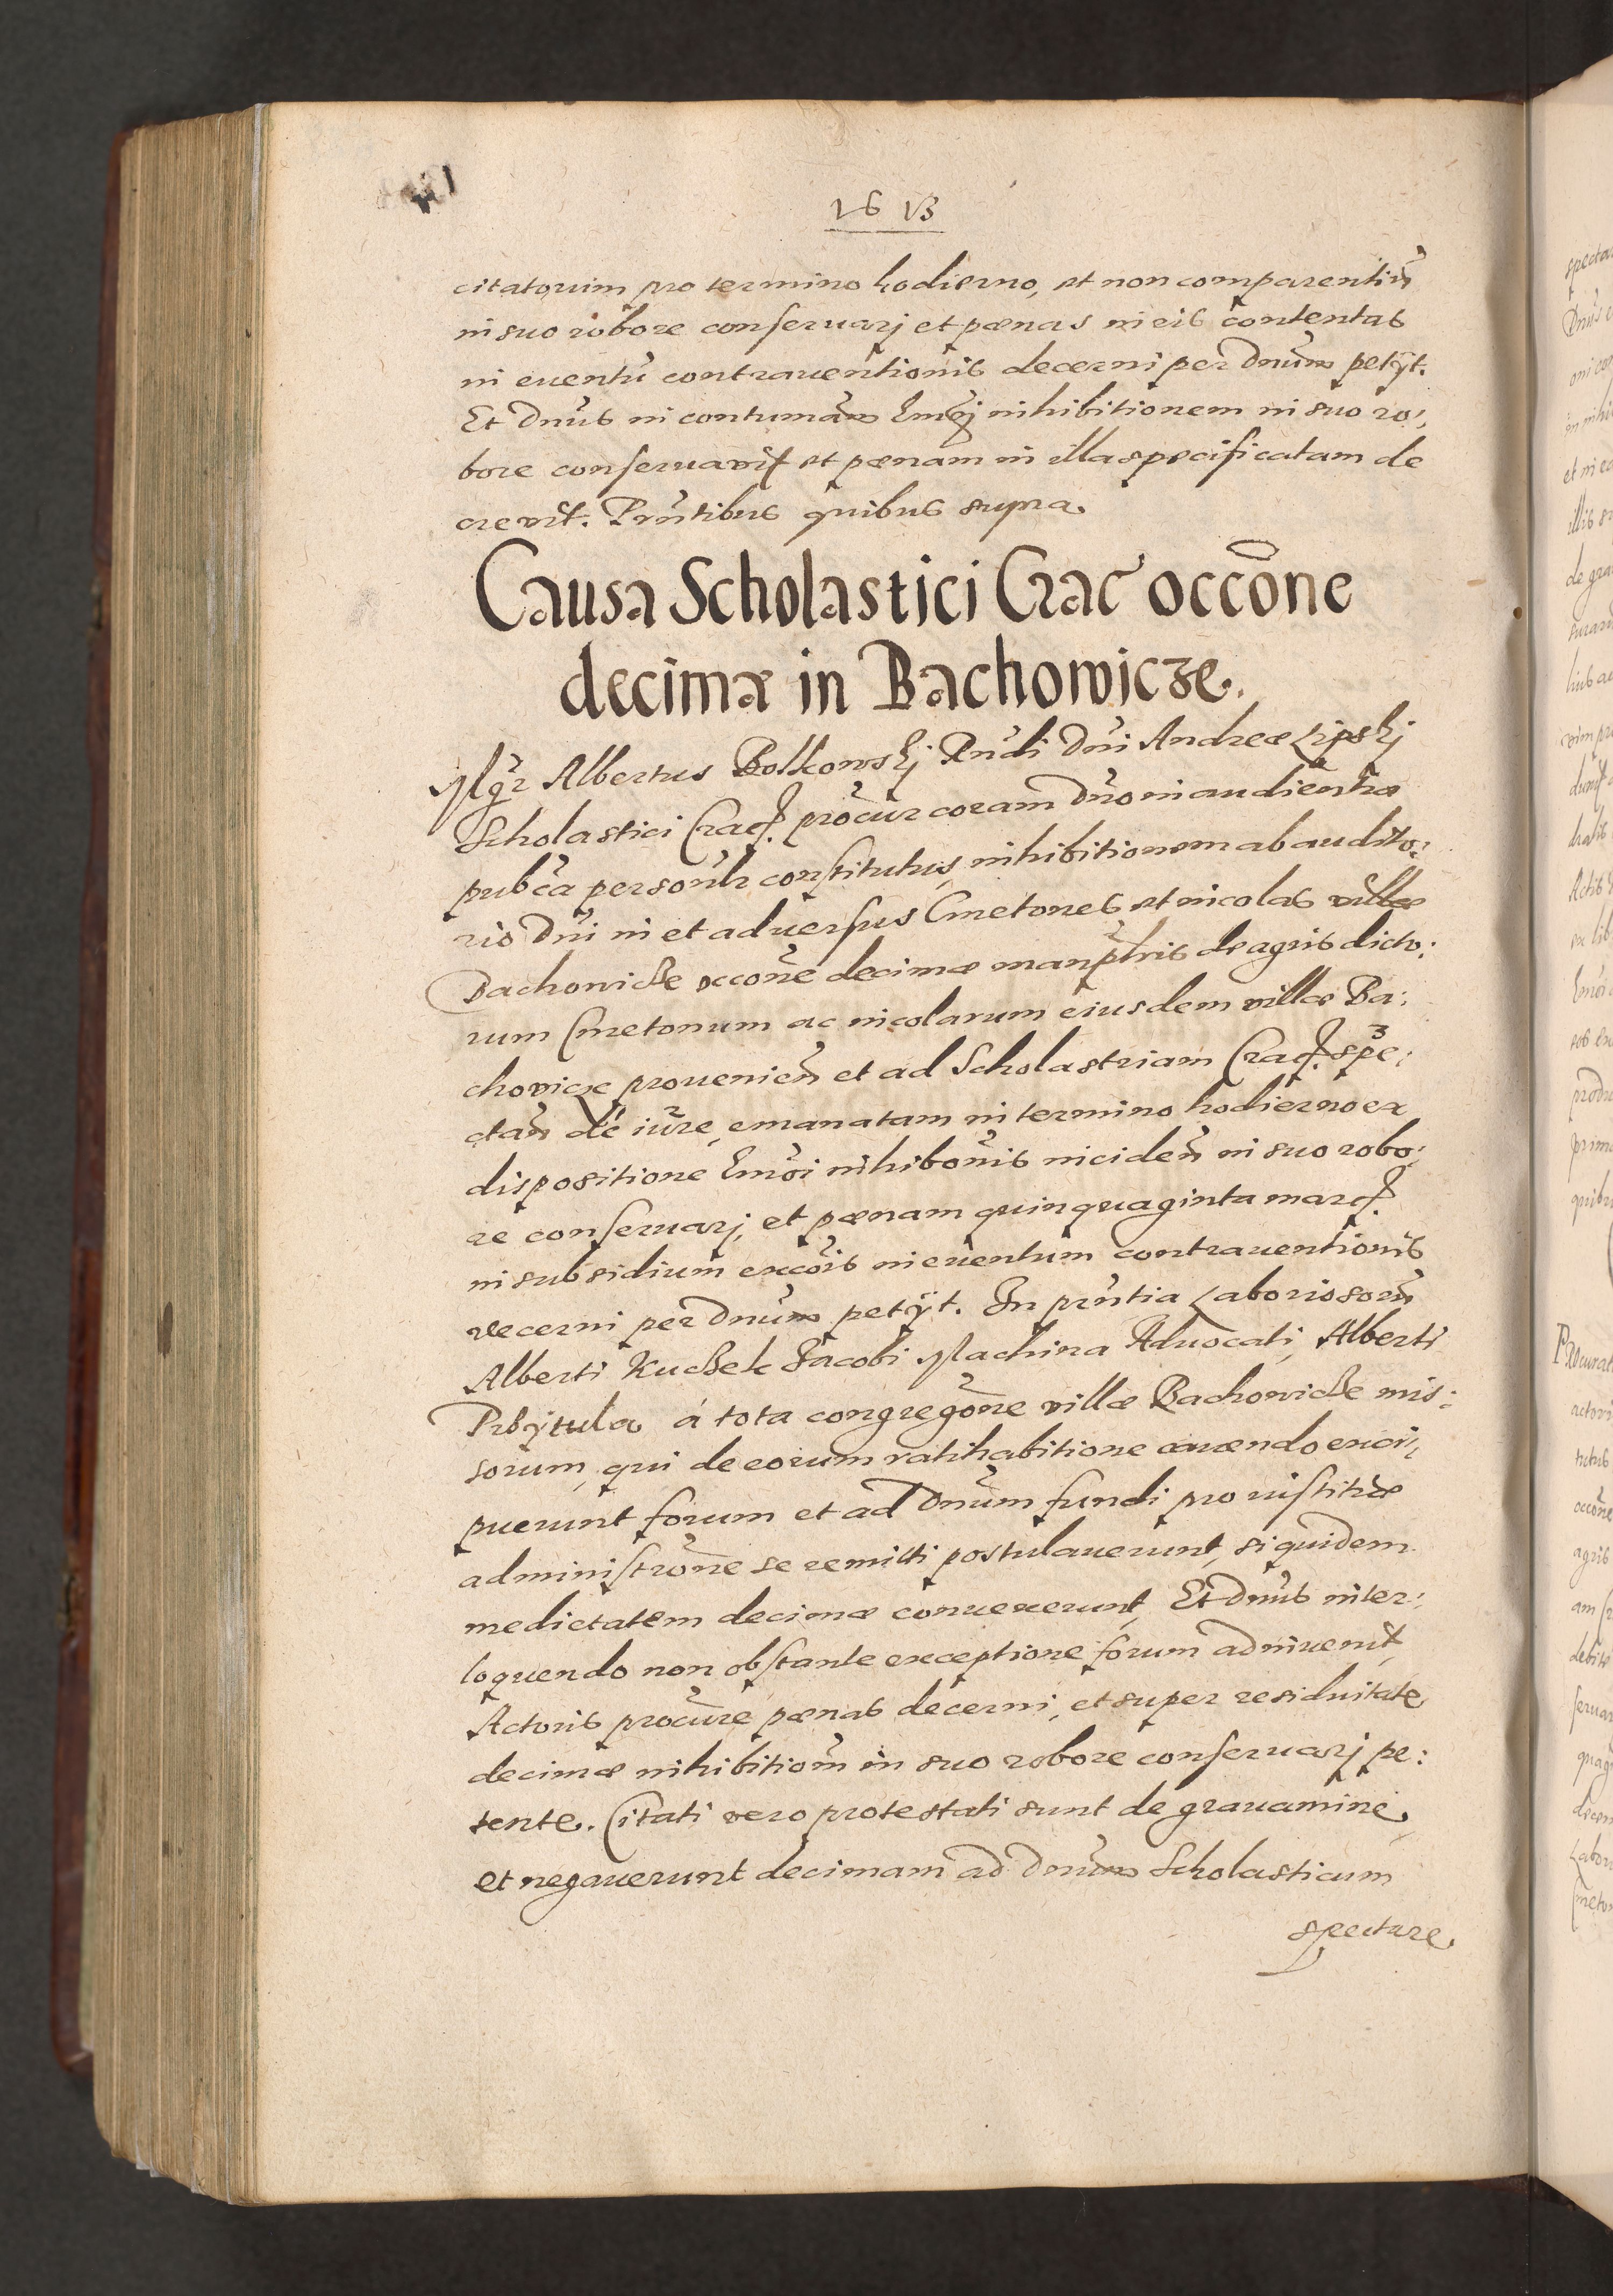 1613
citatorum pro termino hodierno, et non comparentiũ
in suo robore conseruarj et pœnas in eis contentas
in euentũ contrauentionis decerni per Dnũm petÿt.
Et Dnũs in contumãm hmõj inhibitionem in suo ro:
bore conseruauit et pœnam in illa specificatam de
creuit. Prñtibus quibus supra.
Causa Scholastici Crac occõne
decimæ in Bachowicze.
Mgr Albertus Bolkowskj Rñdi Dñi Andreæ Lipskj
Scholastici Crac. procur coram Dño in audientia
pubca personlr constitutus, inhibitionem ab audito:
rio Dñi in et aduersus Cmetones et incolas villæ
Bachowicze occõne decimæ manipłris de agris dicto:
rum Cmetonum ac incolarum eiusdem villæ Ba:
chovicze prouenieñ et ad Scholastriam Crac. spe:
ctañ de iure, emanatam in termino hodierno ex
dispositione hmõi inhibõnis incideñ in suo robo:
re conseruarj, et pœnam quinquaginta marc.
in subsidium excõis in euentum contrauentionis
decerni per Dnũm petÿt. In prñtia Laboriosorũ
Alberti Kuczek Jacobi Machina Aduocati, Alberti
Przÿtula á tota congregõne villæ Bachowicze mis:
sorum, qui de eorum ratihabitione cauendo exci:
puerunt forum et ad Dnũm fundi pro iustitiæ
administrõne se remitti postulauerunt, siquidem
medietatem decimæ conuexerunt, Et Dnũs inter:
loquendo non obstante exceptione forum adinuenit,
Actoris procure pœnas decerni, et super residuitate
decimæ inhibitiom in suo robore conseruarj pe:
tente. Citati vero protestati sunt de grauamine,
et negauerunt decimam ad Dnũm Scholasticum
spectare